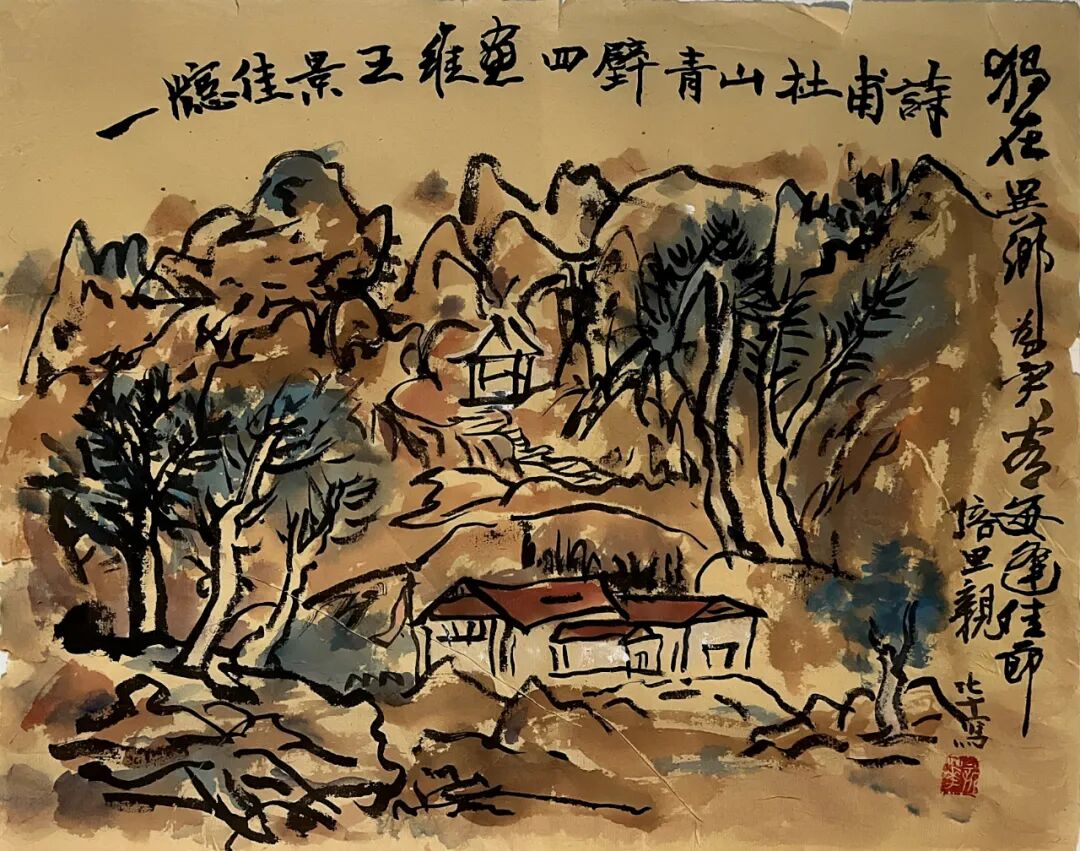 一牕佳景王維畫四壁青山杜甫詩
獨在異鄉為異客每逢佳節
倍思親
寫